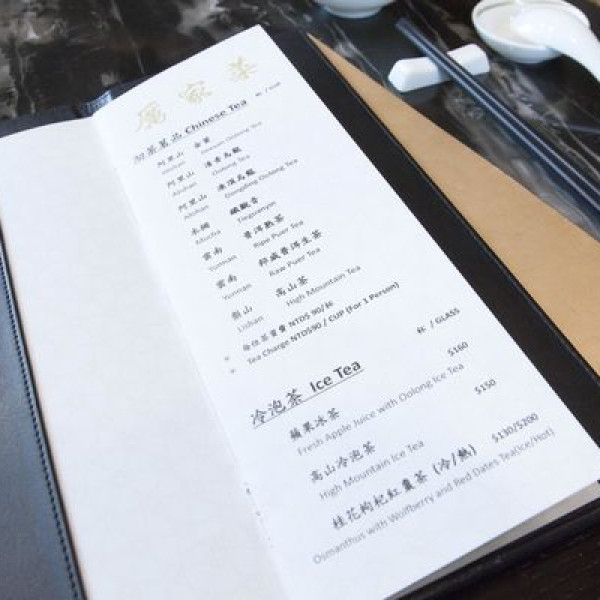 厲家菜
茗品 Chinese Tea
阿里山 金萱
Alishan Jinxuan Oolong Tea
阿里山 清香烏龍
Alishan Oolong Tea
阿里山 凍頂烏龍
Alishan Dongding Oolong Tea
木柵 鐵觀音
Mucha Tieguanyin
雲南 普洱熟茶
Yunnan Ripe Puer Tea
雲南 邦威普洱生茶
Yunnan Raw Puer Tea
梨山 高山茶
Lishan High Mountain Tea
※ 每位茶資費 NTD$ 90/杯
※ Tea Charge NTD$90 / CUP (For 1 Person)
冷泡茶 Ice Tea 杯 / GLASS
蘋果冰茶 $160
Fresh Apple Juice with Oolong Ice Tea
高山冷泡茶 $150
High Mountain Ice Tea
桂花枸杞紅棗茶 (冷/熱) $130/$200
Osmanthus with Wolfberry and Red Dates Tea(Ice/Hot)